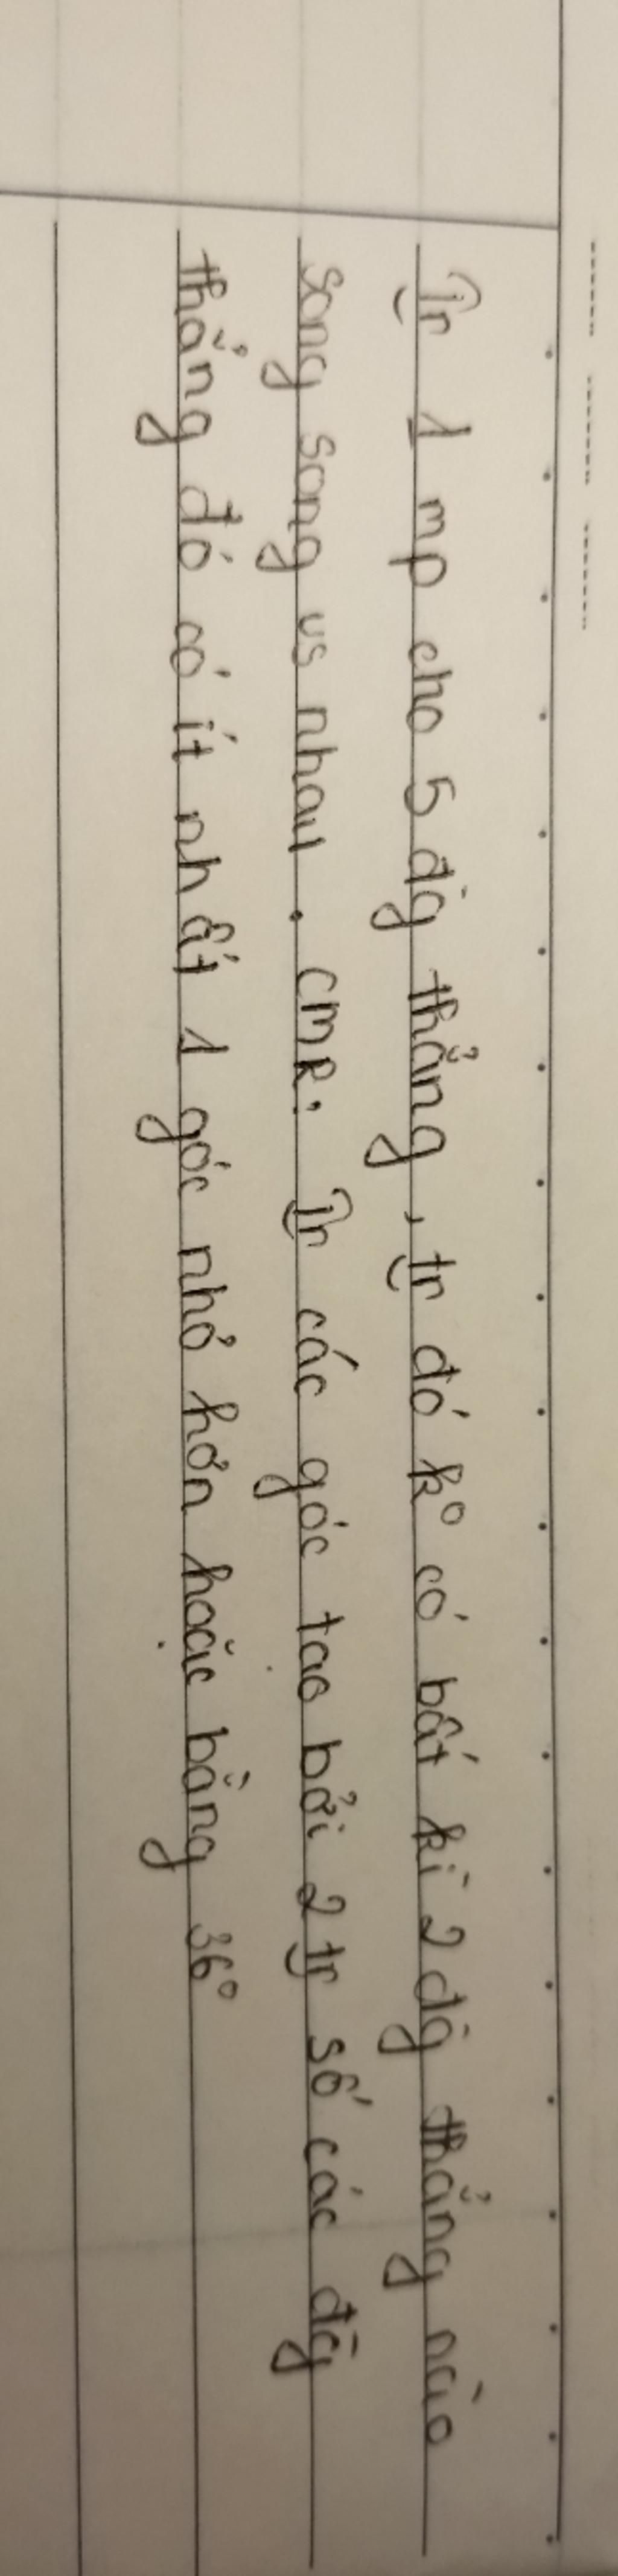 Tr 1 mp cho 5 đg thẳng, tr đó k° có bất kì 2 đg thẳng nào
song song vs nhau. CMR: Tr các góc tạo bởi 2 tr số các đg
thẳng đó có ít nhất 1 góc nhỏ hơn hoặc bằng 36°